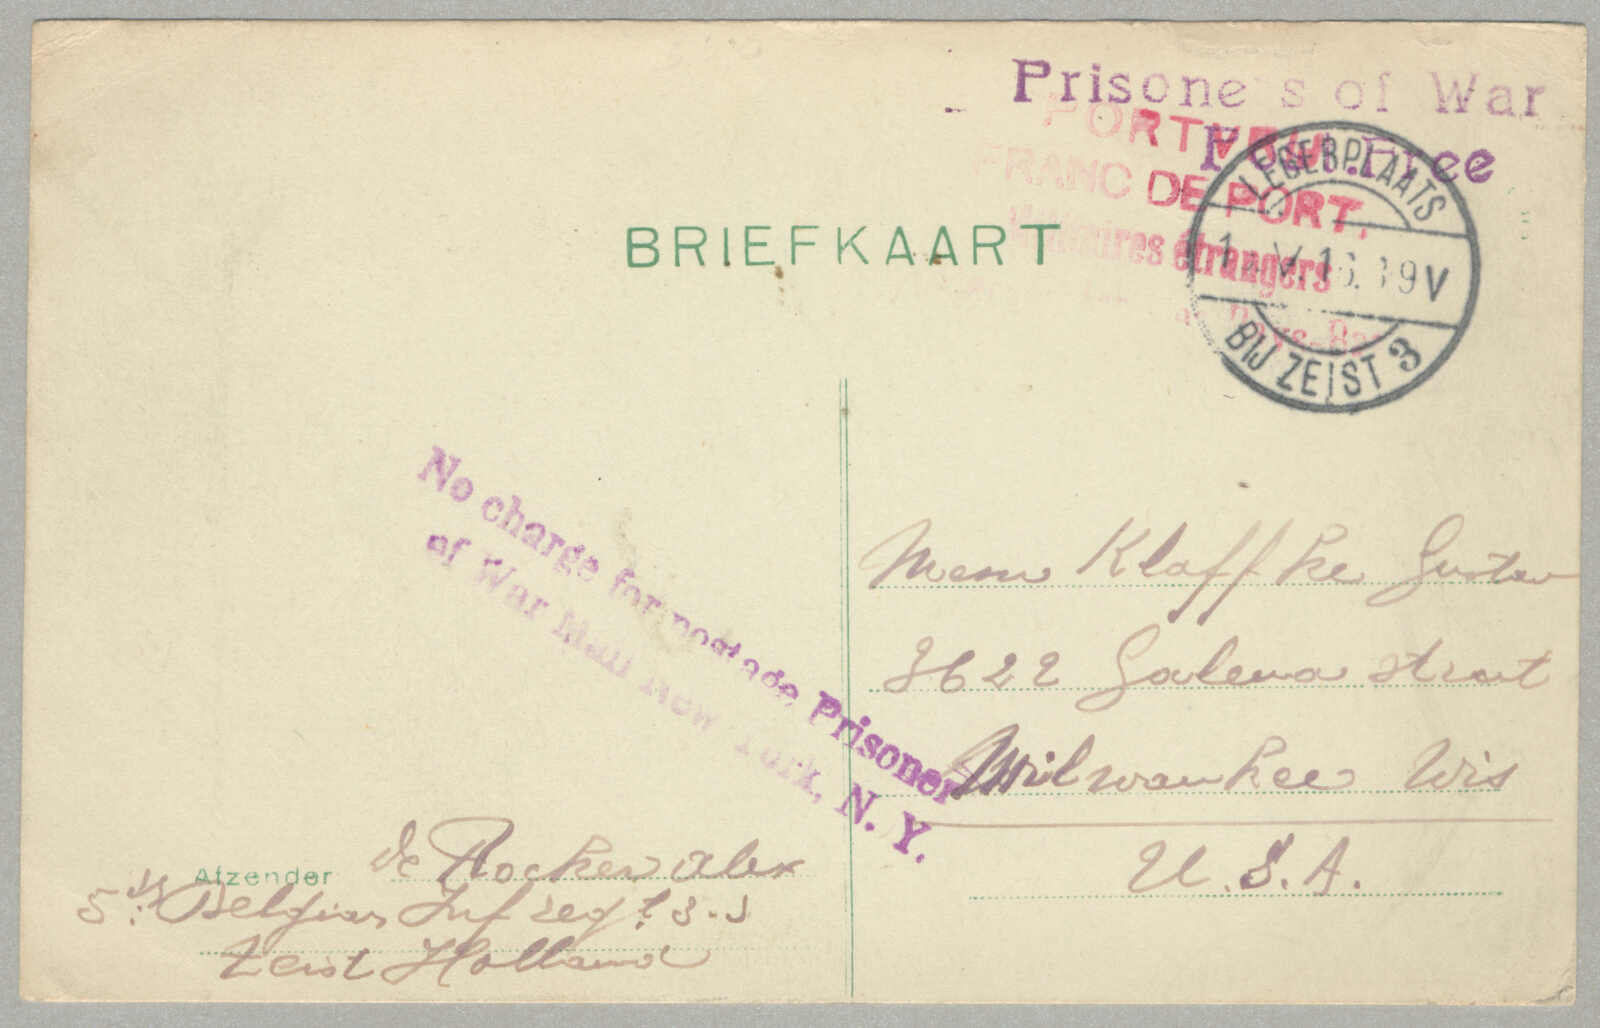 Prisoners of War
Post Free
PORTVRIJ
FRANC DE PORT.
Militaires étrangers
Pays-Bas
LEGERPLAATS
BIJ ZEIST 3
BRIEFKAART
No charge for postage Prisoner
of War Mail New York, N. Y.
Klaffke Gustav
3622 Galena street
Milwaukee Wis
U.S.A.
Afzender de Alex
5 Belgian Inf reg
Zeist Holland